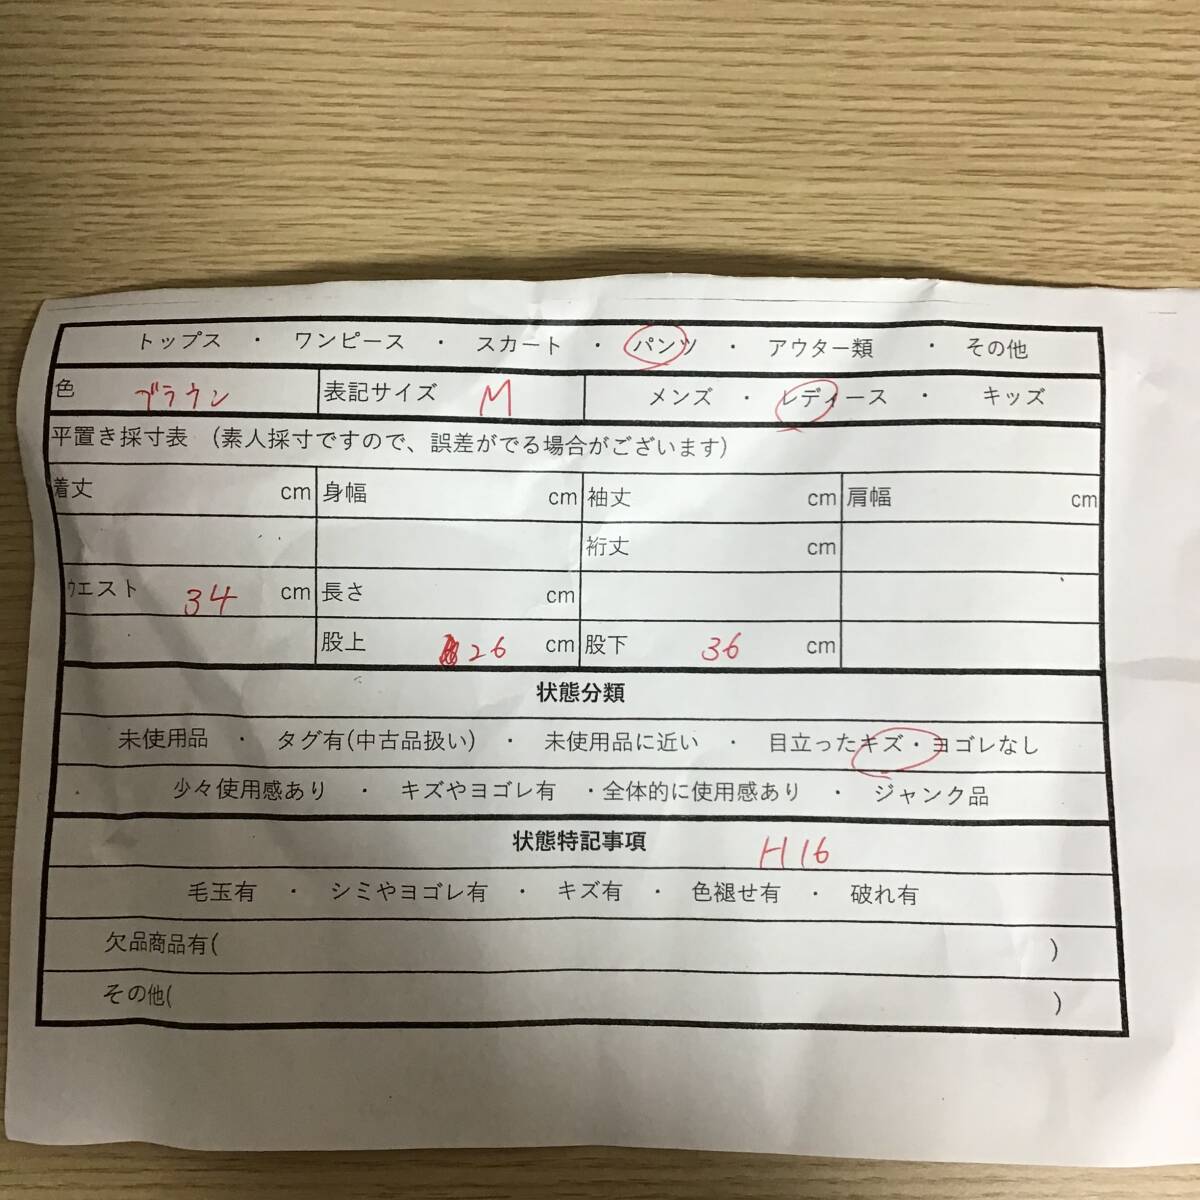 トップス ・ ワンピース ・ スカート ・ パンツ ・ アウター類 ・ その他
色 ブラウン 表記サイズ M メンズ ・ レディース ・ キッズ
平置き採寸表 (素人採寸ですので、誤差がでる場合がございます)
着丈 cm 身幅 cm 袖丈 cm 肩幅 cm
裄丈 cm
ウエスト 34 cm 長さ cm
股上 26 cm 股下 36 cm
状態分類
未使用品 ・ タグ有(中古品扱い) ・ 未使用品に近い ・ 目立ったキズ・ヨゴレなし
・ 少々使用感あり ・ キズやヨゴレ有 ・全体的に使用感あり ・ ジャンク品
状態特記事項 H16
毛玉有 ・ シミやヨゴレ有 ・ キズ有 ・ 色褪せ有 ・ 破れ有
欠品商品有( )
その他( )